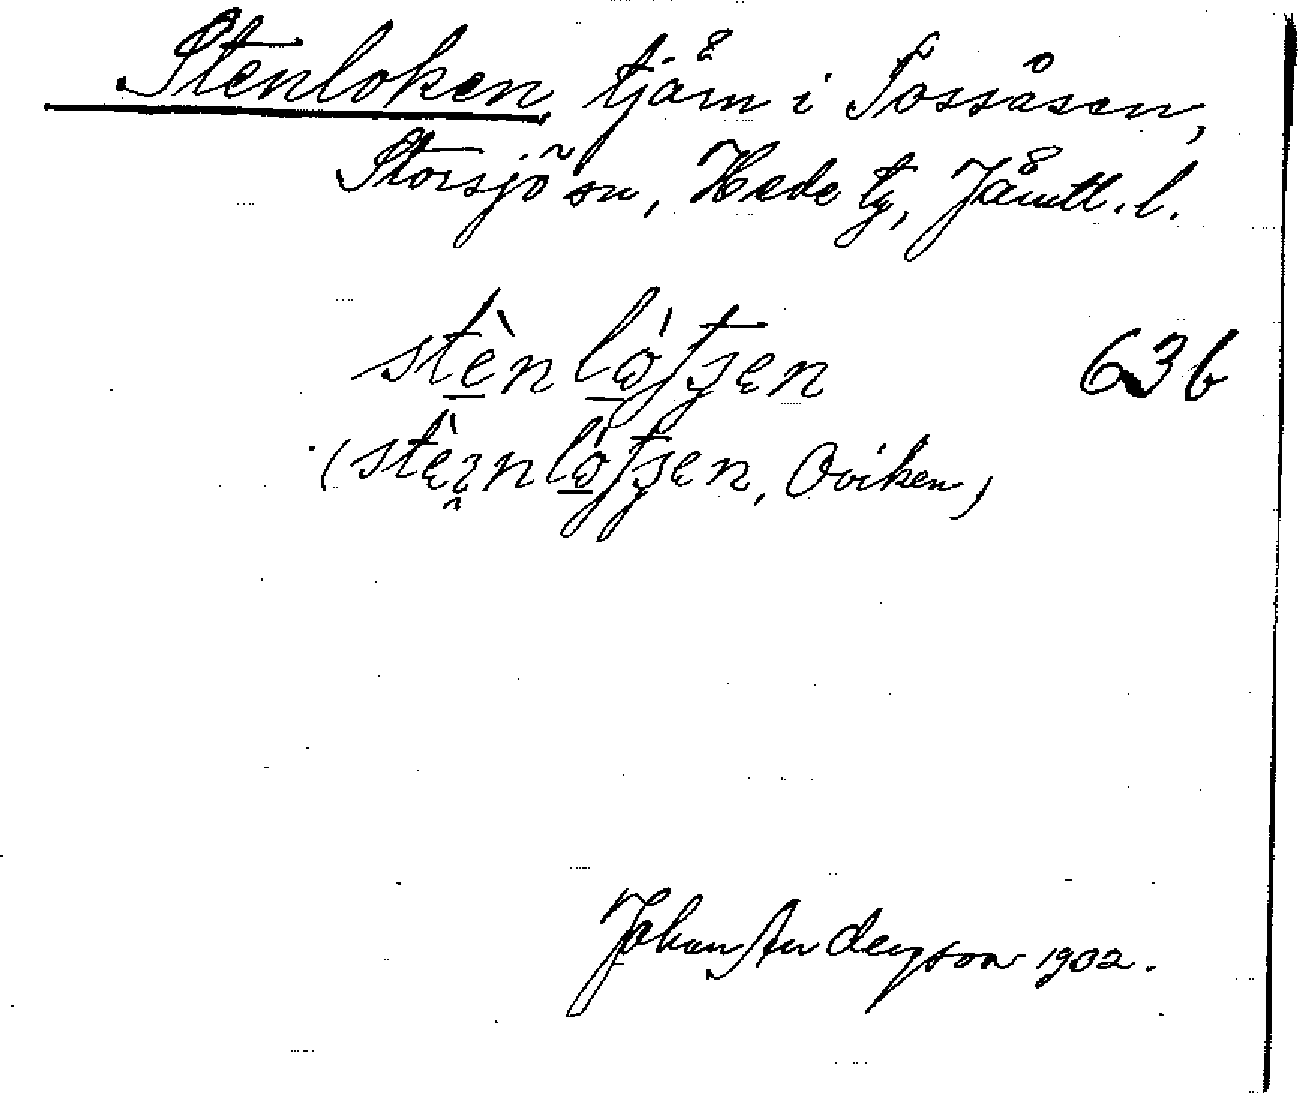 Stenloken tjärn i Tossåsen,
Storsjö sn, Hede tg, Jämtl. l.
stènlòtʃen 63b
(stèrnlòtʃen, Oviken)
Johan Anderzson 1902.